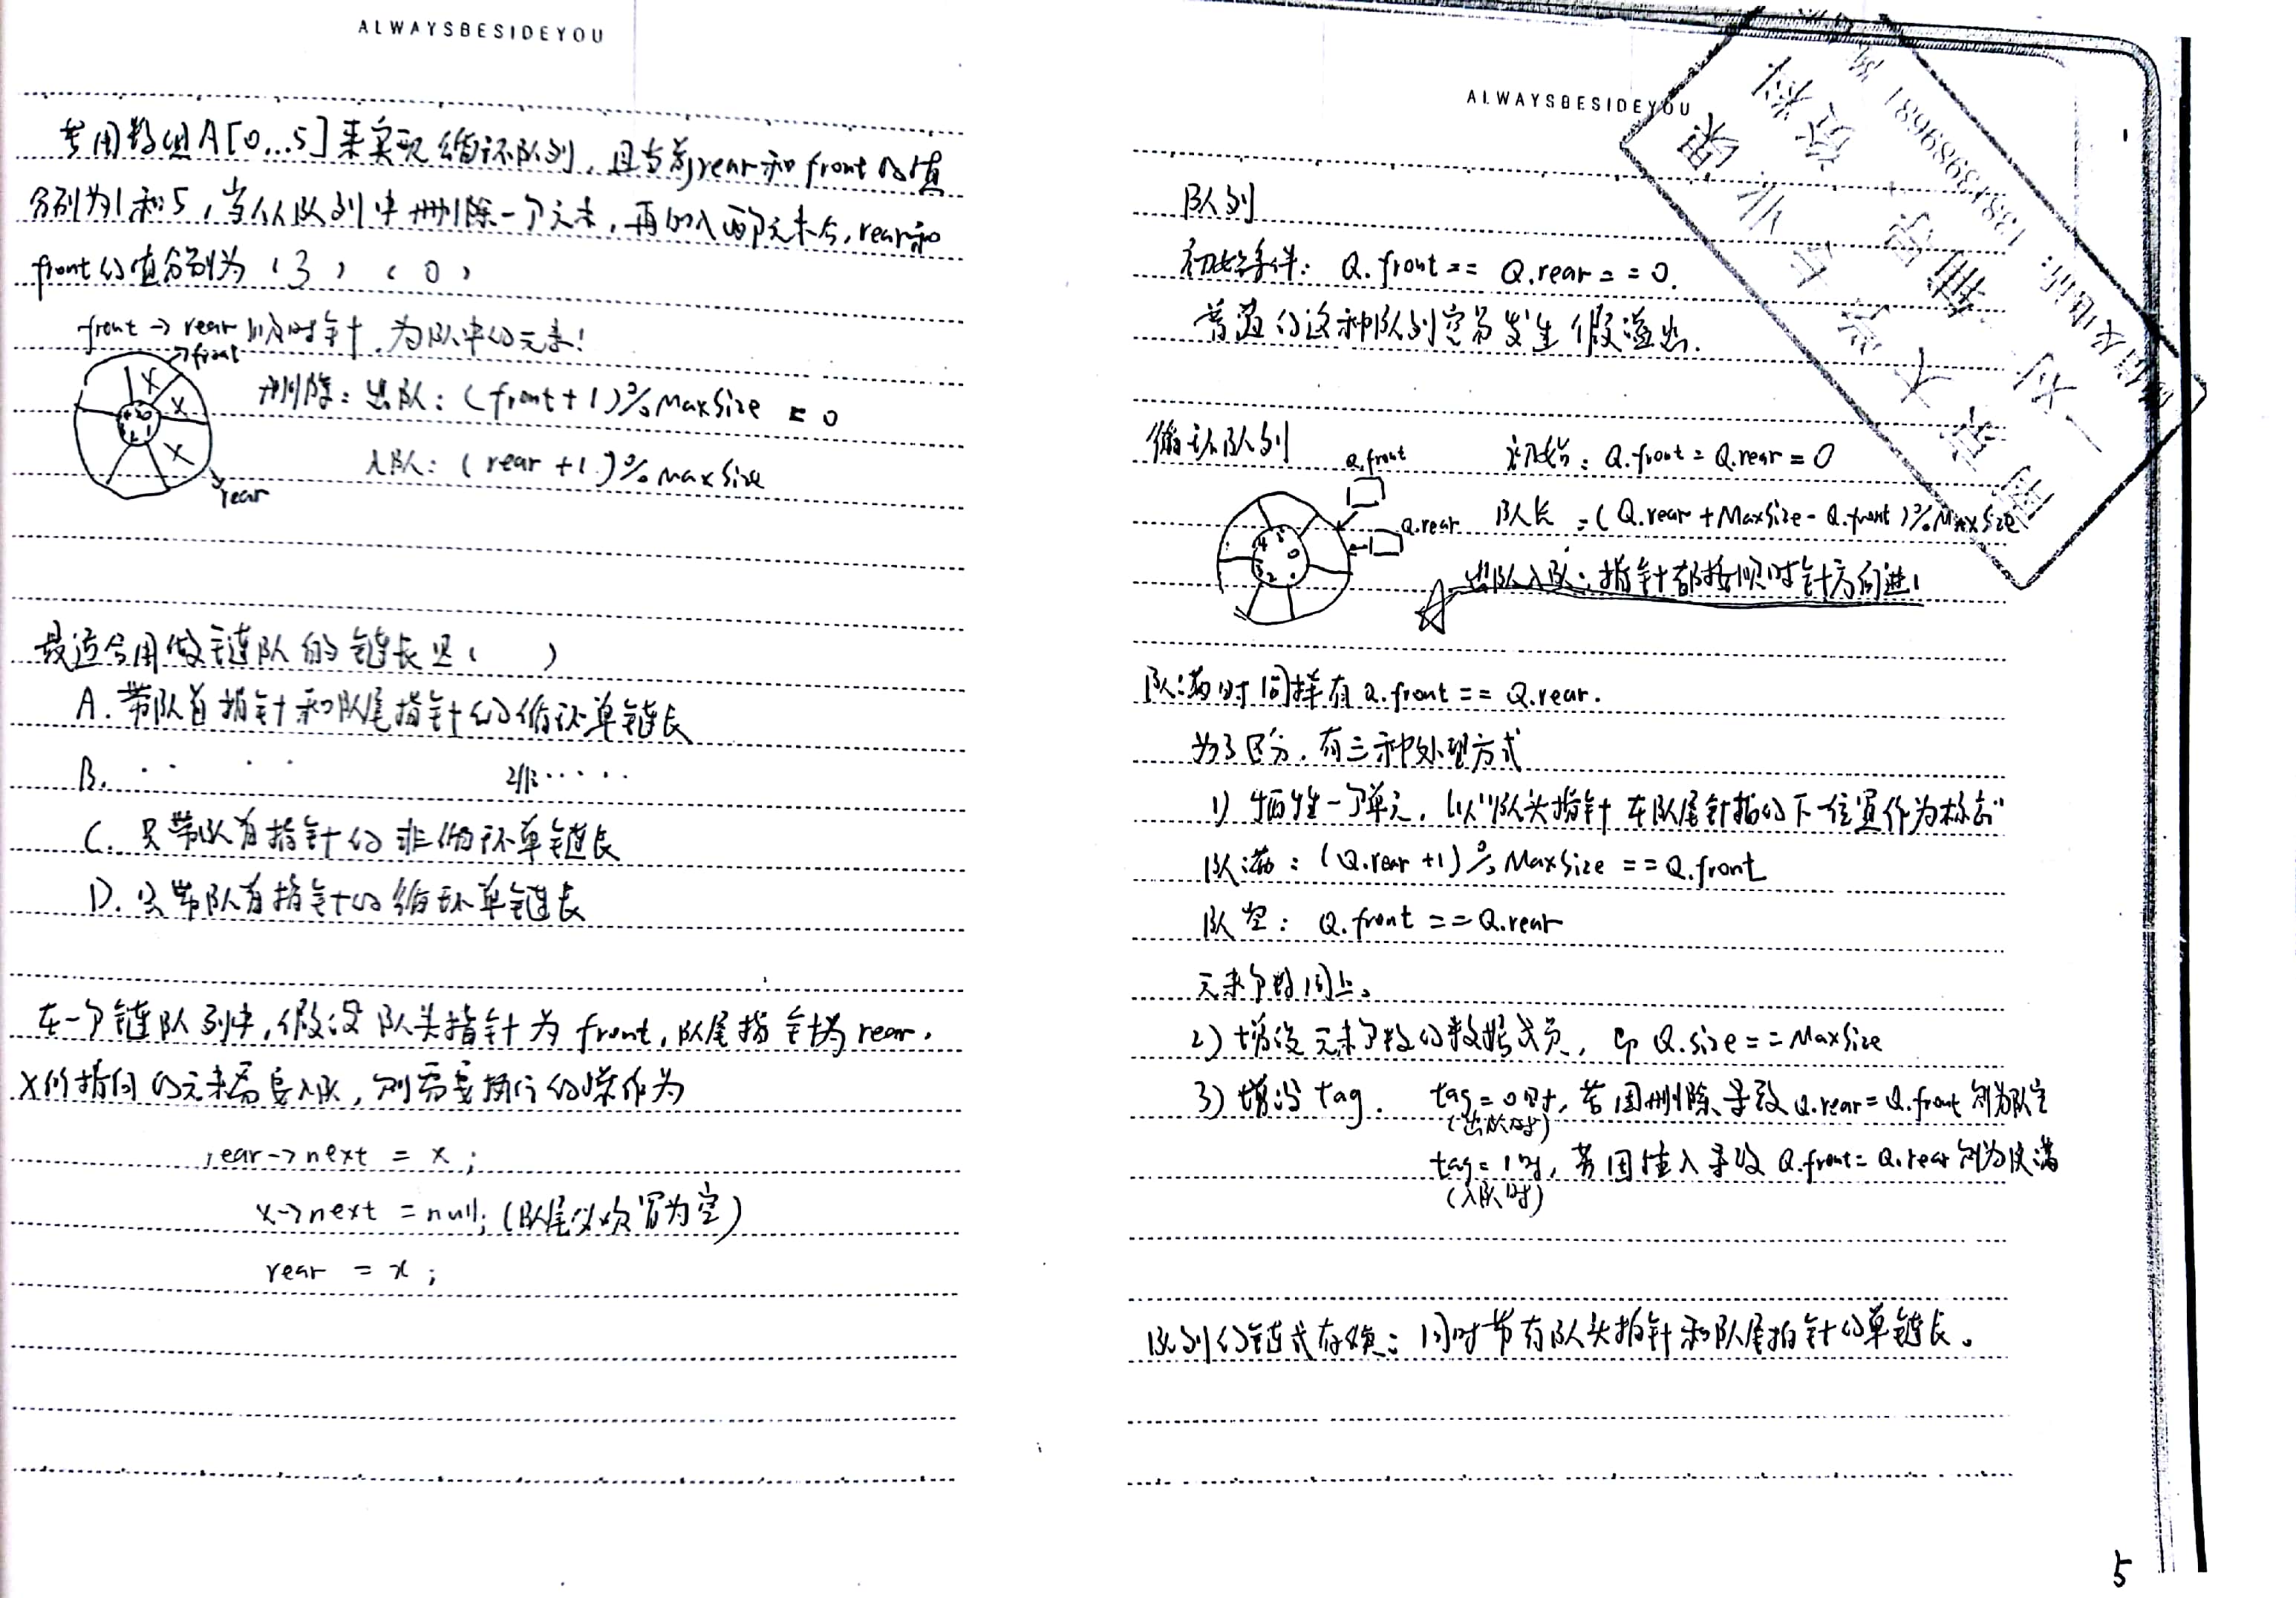 ALWAYSBESIDEYOU
若用数组A[0...5]来实现循环队列，且当前rear和front的值
分别为1和5，当从队列中删除一个元素，再加入两个元素后，rear和
front的值分别为（3）（0）
front → rear 顺时针，为队中的元素！
front
删除：出队：(front+1)%MaxSize = 0
入队：(rear+1)%MaxSize
rear
最适合用做链队的链表是（ ）
A. 带队首指针和队尾指针的循环单链表
B. ·· ·· 非·····
C. 只带队首指针的非循环单链表
D. 只带队首指针的循环单链表
在一个链队列中，假设队头指针为front，队尾指针为rear.
x所指向的元素需要入队，则需要执行的操作为
rear->next = x ;
x->next = null; (队尾必须置为空)
rear = x ;
ALWAYSBESIDEYOU
队列
初始条件：Q.front == Q.rear == 0.
普通的这种队列容易发生假溢出.
循环队列
Q.front
初始：Q.front = Q.rear = 0
Q.rear
队长 =(Q.rear+MaxSize-Q.front)%MaxSize
出队入队：指针都按顺时针方向进1
队满时同样有Q.front == Q.rear.
为了区分，有三种处理方式
1) 牺牲一个单元，以"队头指针在队尾指针的下一位置作为标志"
队满：(Q.rear+1)%MaxSize == Q.front
队空：Q.front == Q.rear
元素个数同上。
2) 增设元素个数的数据成员，即Q.size == MaxSize
3) 增设tag. tag=0时，若因删除导致Q.rear=Q.front则为队空
(出队时)
tag=1时，若因插入导致Q.front=Q.rear则为队满
(入队时)
队列的链式存储：同时带有队头指针和队尾指针的单链表。
5